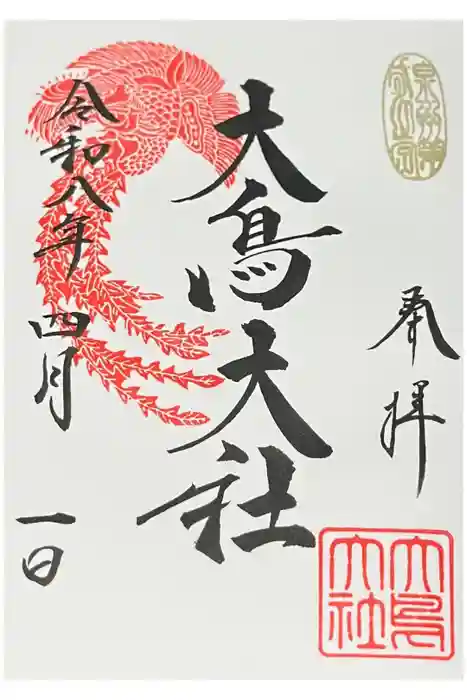 奉拝
大鳥大社
令和八年
四月
一日
大鳥
大社